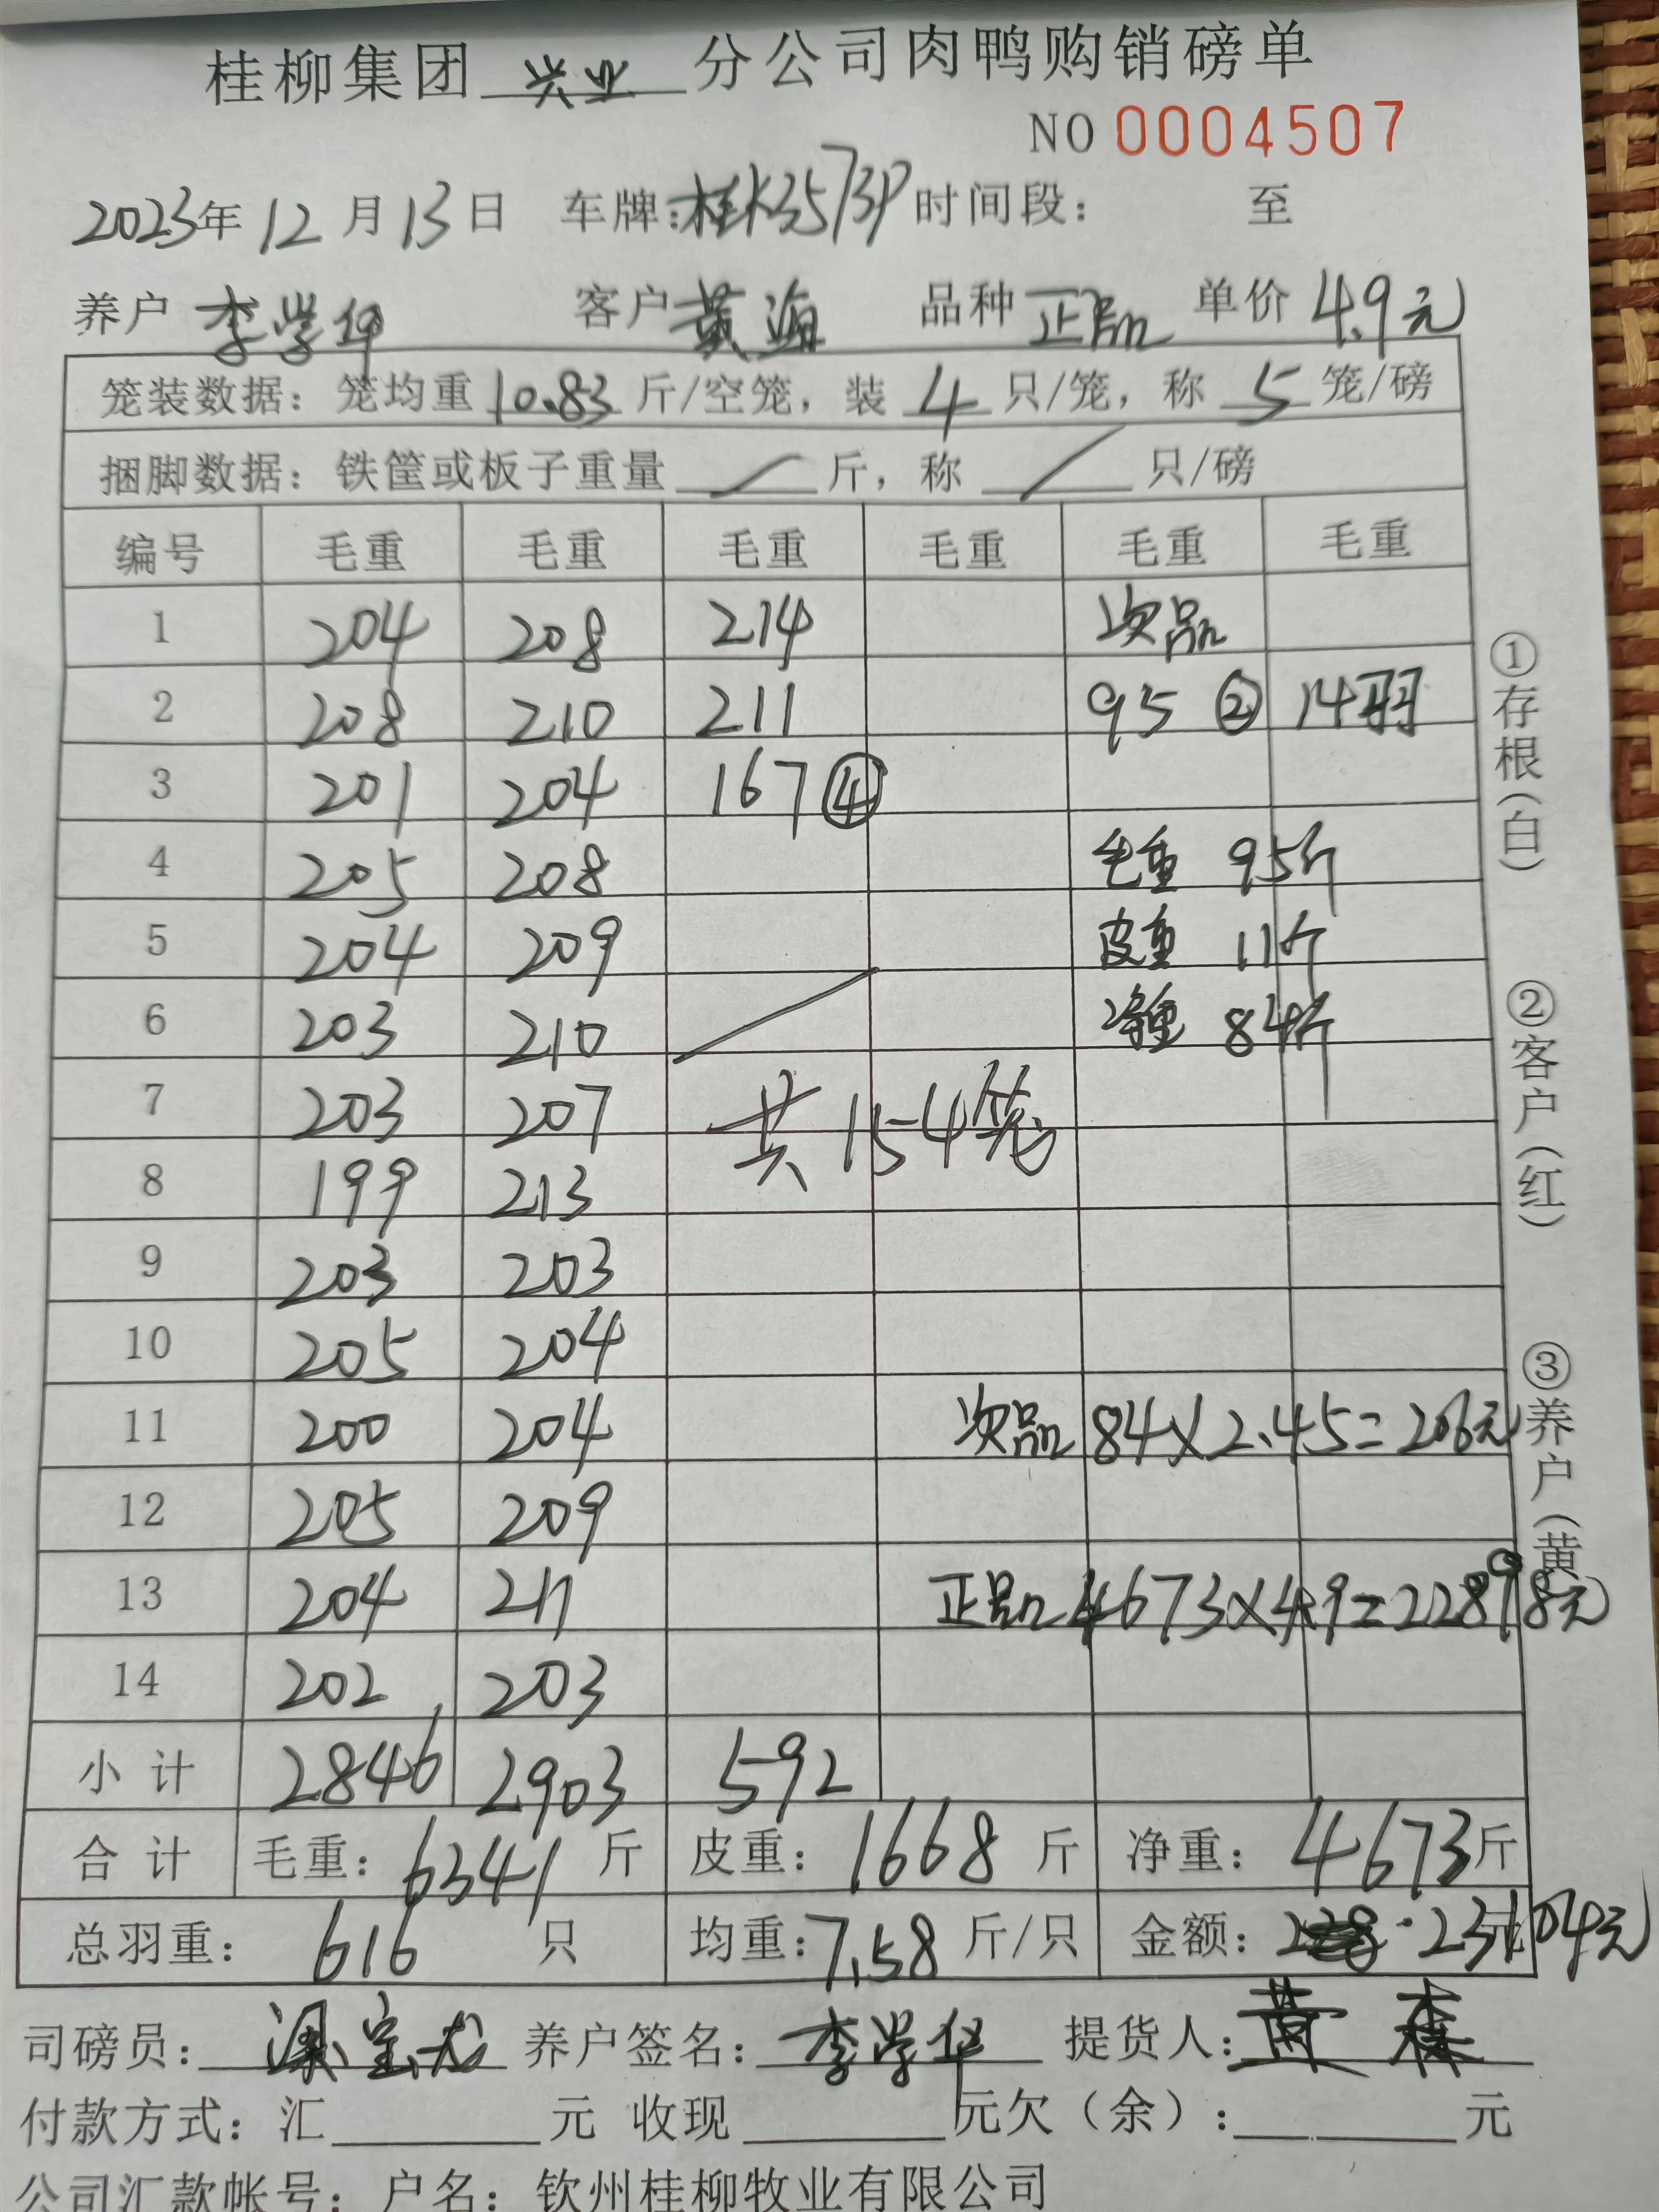 桂柳集团 兴业 分公司肉鸭购销磅单
NO 0004507
2023年12月13日 车牌:桂K3573P 时间段: 至
养户 李学华 客户 黄海 品种 正品 单价 4.9元
笼装数据: 笼均重 10.83 斤/空笼, 装 4 只/笼, 称 5 笼/磅
捆脚数据: 铁筐或板子重量 / 斤, 称 / 只/磅
编号 毛重 毛重 毛重 毛重 毛重 毛重
1 204 208 214 次品
2 208 210 211 95 ② 14羽
3 201 204 167 ④
4 205 208 毛重 95斤
5 204 209 皮重 11斤
6 203 210 净重 84斤
7 203 207 共154笼
8 199 213
9 203 203
10 205 204
11 200 204 次品 84×2.45=206元
12 205 209
13 204 211 正品 4673×4.9=22898元
14 202 203
小计 2846 2903 592
合计 毛重: 6341 斤 皮重: 1668 斤 净重: 4673斤
总羽重: 616 只 均重: 7.58 斤/只 金额: 23104元
司磅员: 养户签名: 李学华 提货人: 黄森
付款方式: 汇 元 收现 元欠(余): 元
公司汇款帐号: 户名: 钦州桂柳牧业有限公司
①存根(白)
②客户(红)
③养户(黄